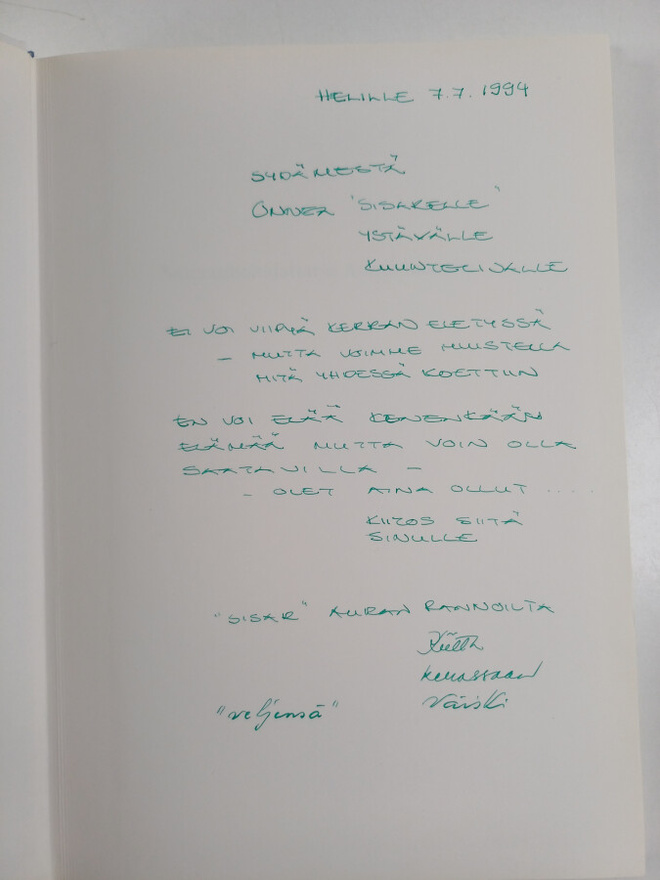 HELILLE 7.7.1994
SYDÄMESTÄ
ONNEA "SISARELLE"
YSTÄVÄLLE
KUUNTELIJALLE
EI VOI VIIPYÄ KERRAN ELETYSSÄ
- MUTTA VOIMME MUISTELLA
MITÄ YHDESSÄ KOETTIIN
EN VOI ELÄÄ KENENKÄÄN
ELÄMÄÄ MUTTA VOIN OLLA
SAATAVILLA -
- OLET AINA OLLUT ....
KIITOS SIITÄ
SINULLE
"SISAR" AURAN RANNOILTA
"veljensä" Väiski